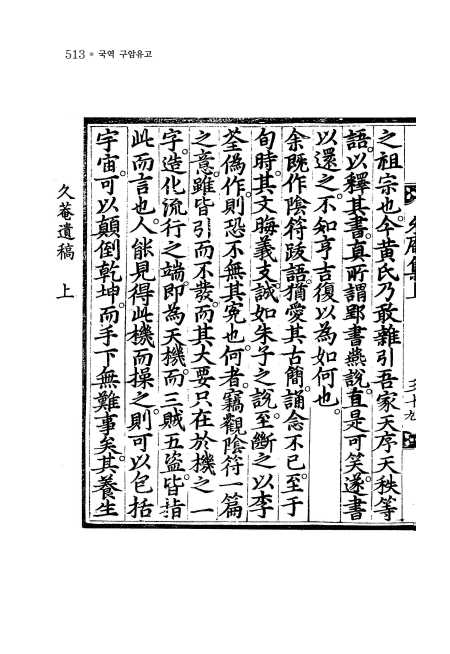 513 • 국역 구암유고
之祖宗也。今黄氏乃敢雜引吾家天序天秩等
語。以釋其書。眞所謂郢書燕說。直是可笑。遂書
以還之。不知亨吉復以為如何也。
余旣作陰符跋語。猶愛其古簡。誦念不已。至于
旬時。其文晦義支。誠如朱子之說。至斷之以李
荃僞作。則恐不無其寃也。何者。竊觀陰符一篇
之意。雖皆引而不發。而其大要只在於機之一
字。造化流行之端。即為天機。而三賊五盜。皆指
此而言也。人能見得此機而操之。則可以包括
宇宙。可以顚倒乾坤。而手下無難事矣。其養生
久菴遺稿 上